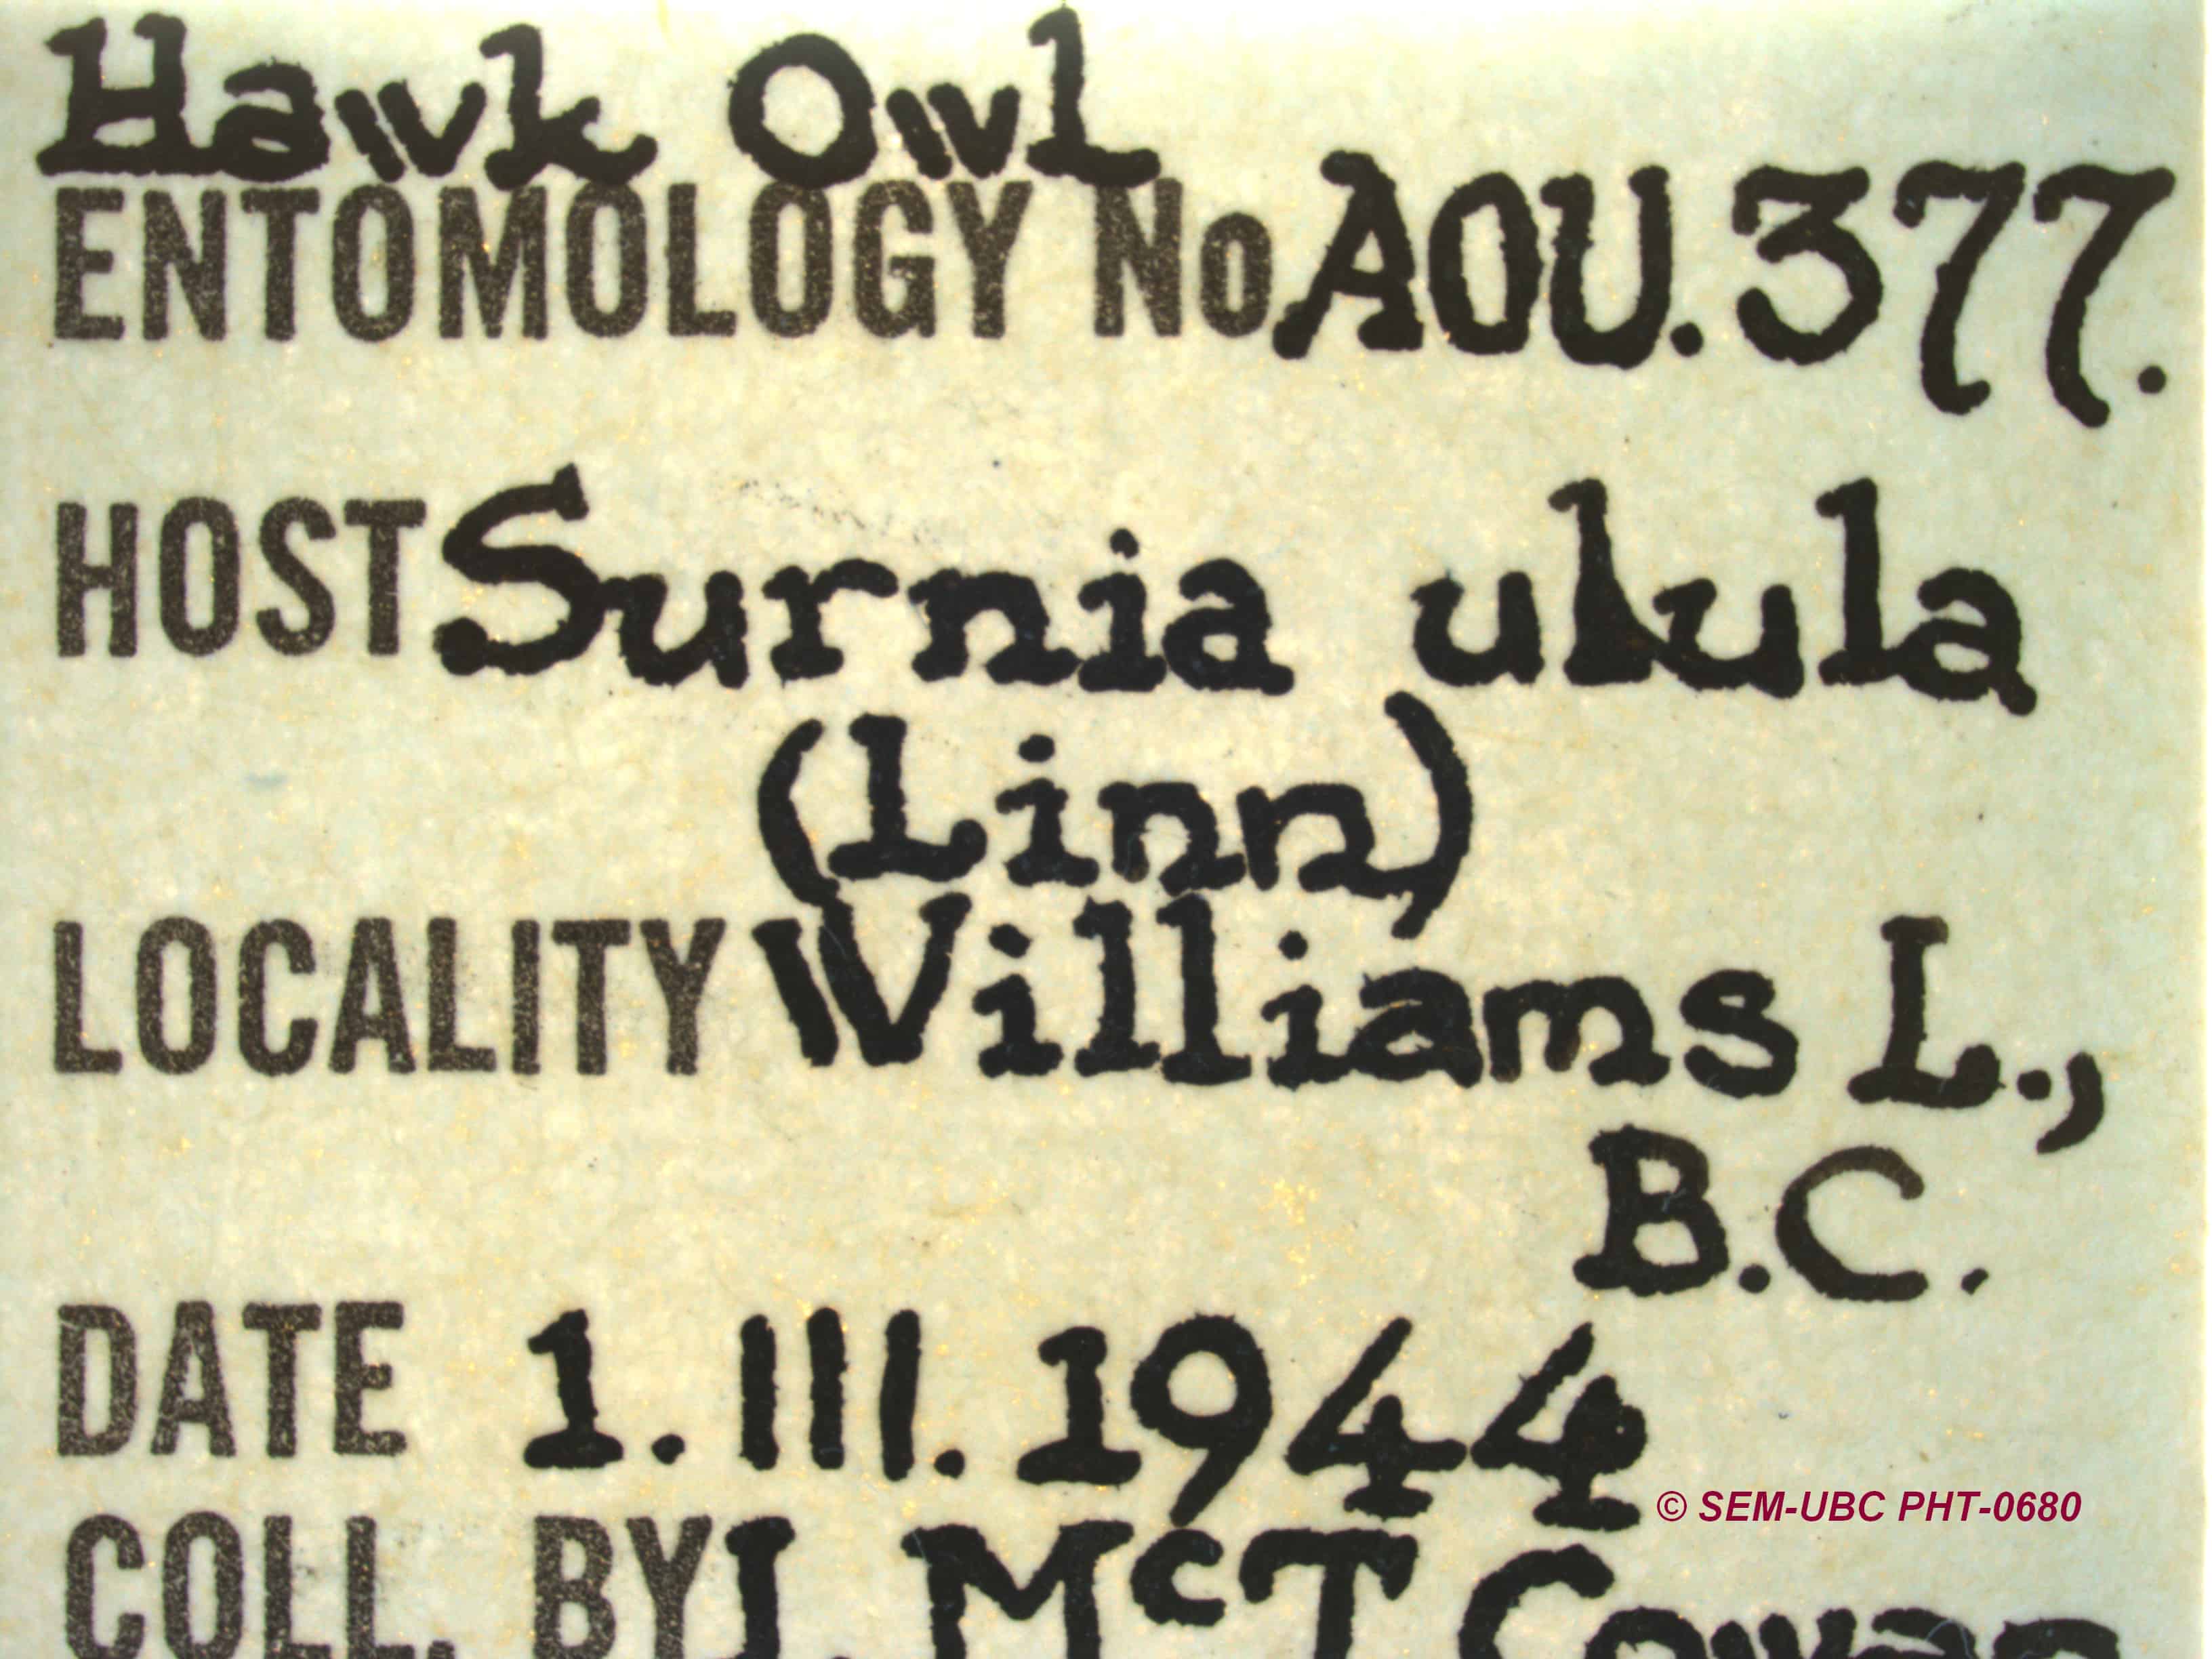 Hawk Owl
ENTOMOLOGY No AOU. 377.
HOST Surnia ulula
(Linn)
LOCALITY Williams L.,
B.C.
DATE 1. III. 1944
© SEM-UBC PHT-0680
COLL. BY I. McT Cowan